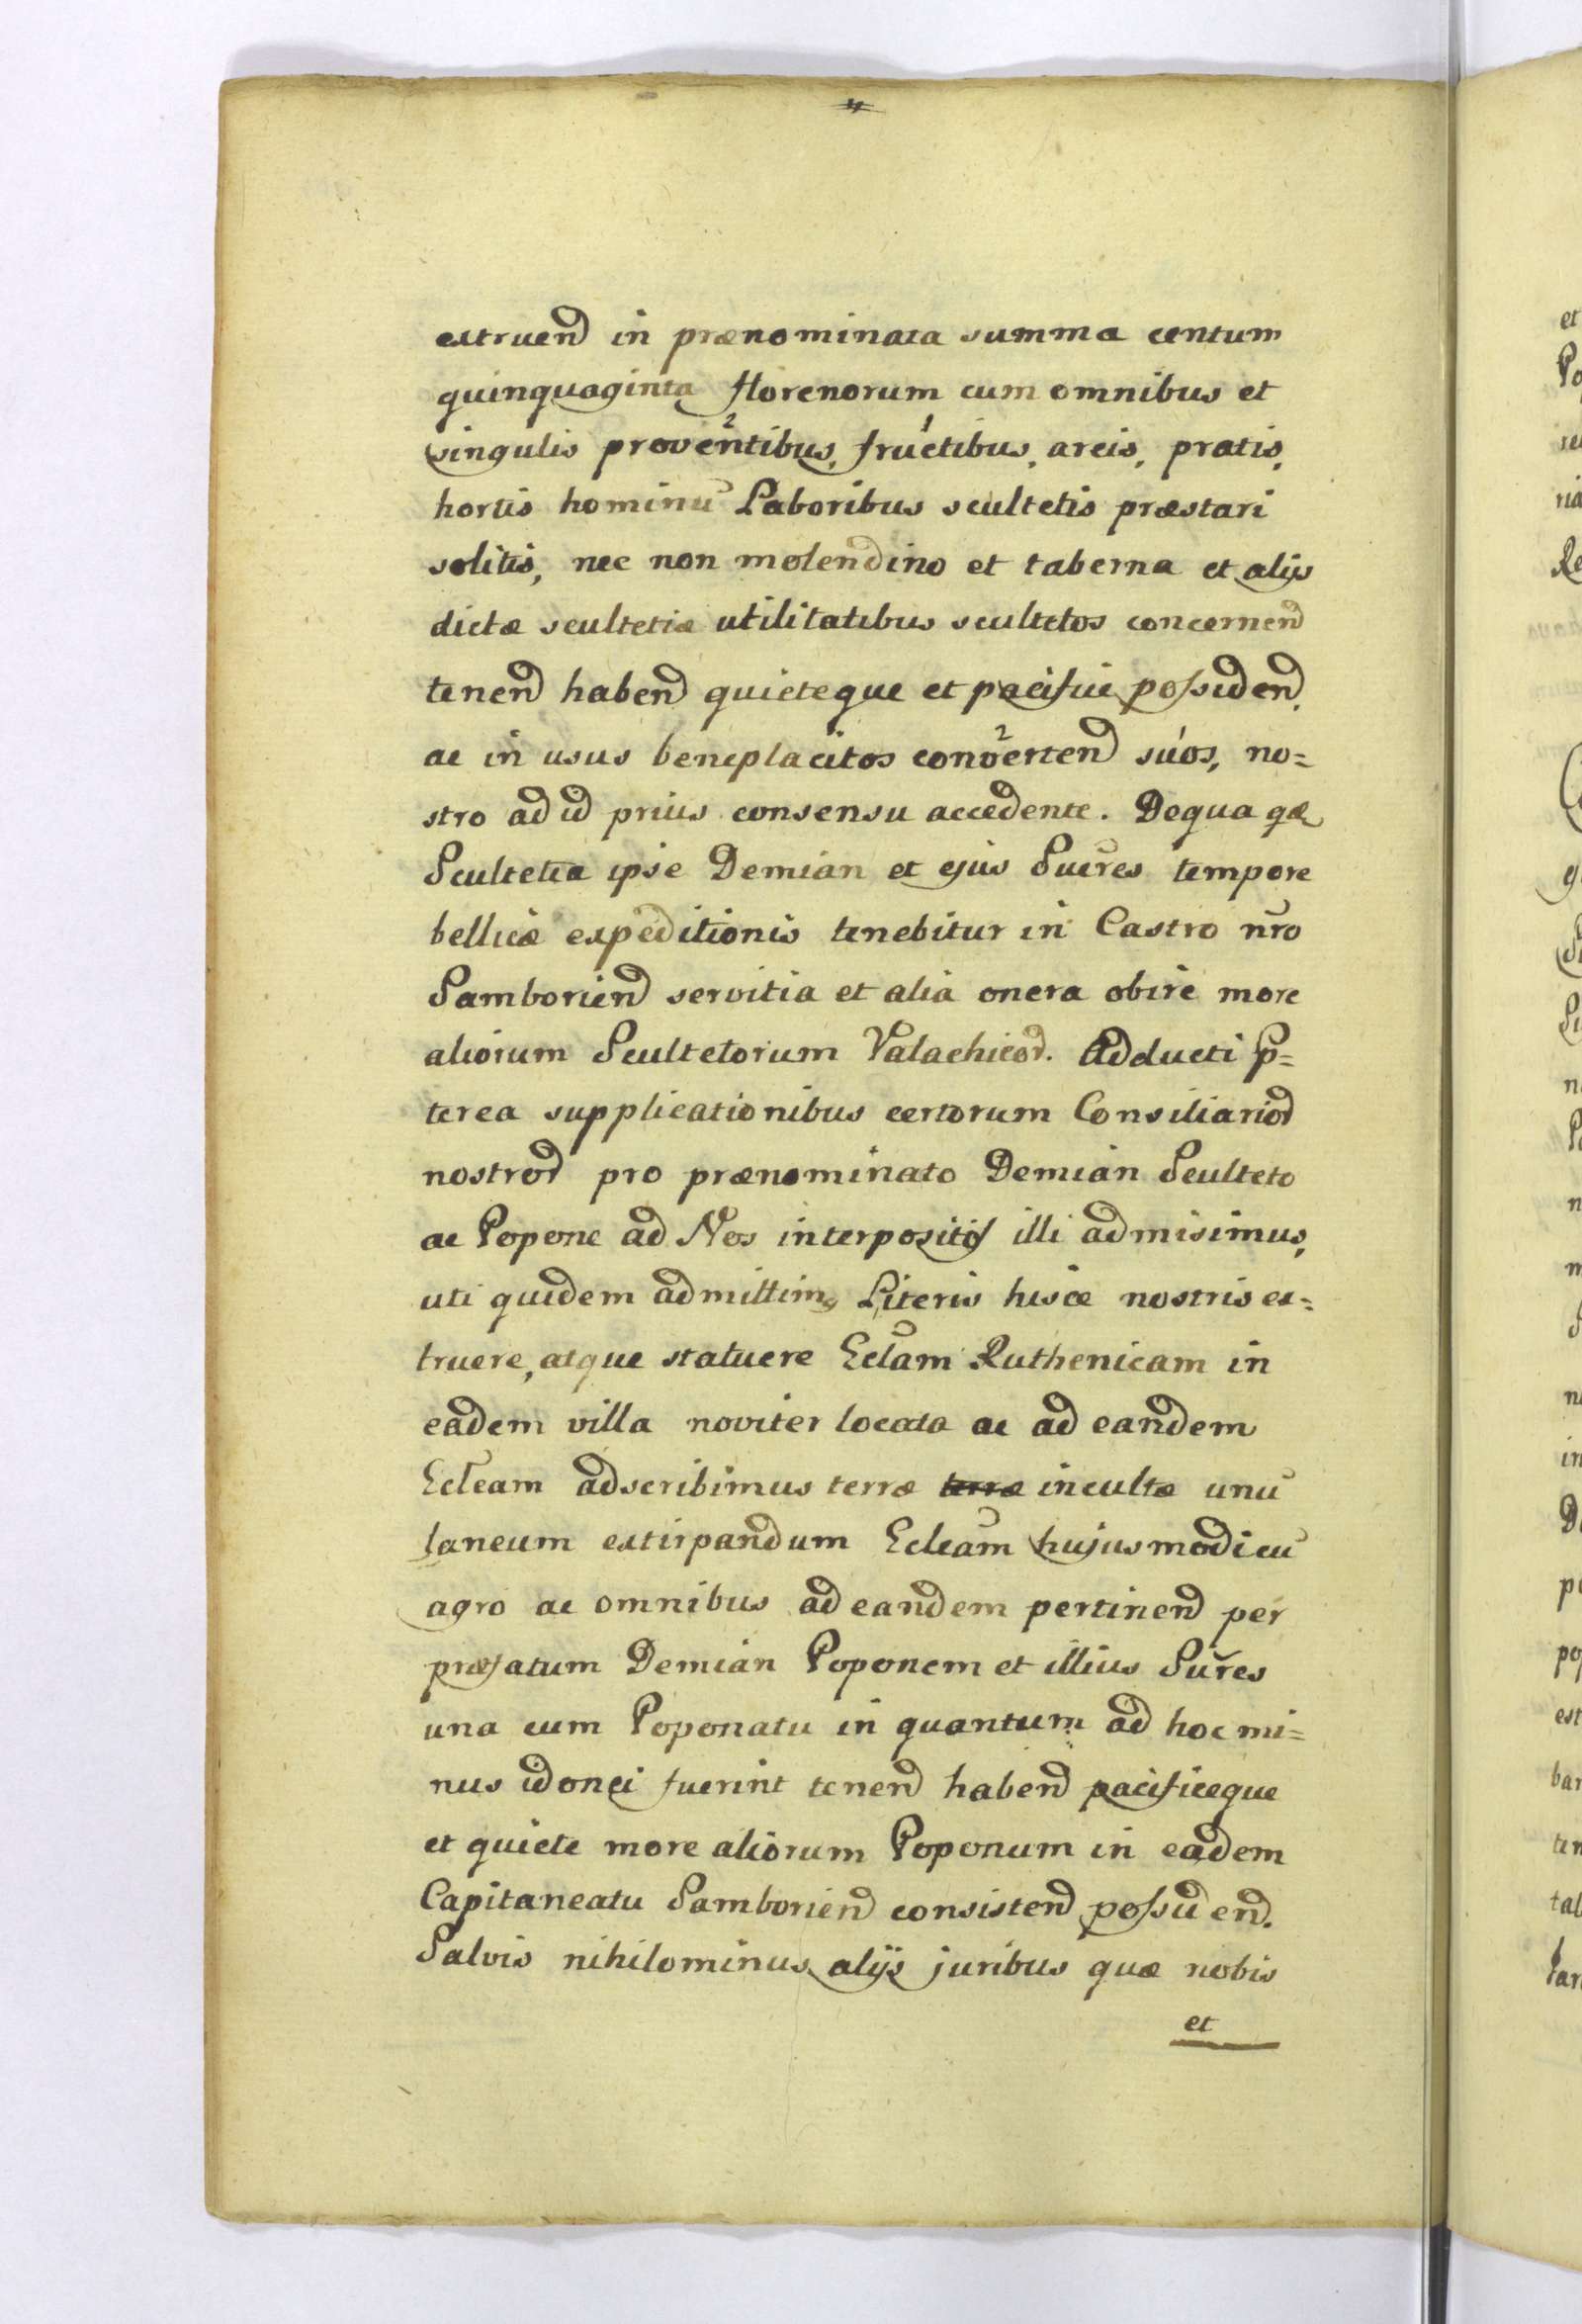 extruend in prænominata summa centum
quinquaginta florenorum cum omnibus et
singulis proventibus, fructibus, areis, pratis,
hortis hominũ Laboribus scultetis præstari
solitis, nec non molendino et taberna et alijs
dictæ scultetiæ utilitatibus scultetos concernend
tenend habend quieteque et pacifice possidend,
ac in usus beneplacitos convertend suos, no=
stro ad id prius consensu accedente. De qua qdẽ
Scultetia ipse Demian et ejus Sucr̃es tempore
bellicæ expeditionis tenebitur in Castro nr̃o
Samboriend servitia et alia onera obire more
aliorum Scultetorum Valachicor. Adducti p=
terea supplicationibus certorum Consiliarior
nostror pro prænominato Demian Sculteto
ac Popone ad Nos interpositis illi admisimus,
uti quidem admittim9 Literis hisce nostris ex=
truere, atque statuere Ecl̃am Ruthenicam in
eadem villa noviter locata ac ad eandem
Ecl̃eam adscribimus terræ terræ incultæ unũ
laneum extirpandum Ecleam̃ hujusmodi cũ
agro ac omnibus ad eandem pertinend per
præfatum Demian Poponem et illius Sur̃es
una cum Poponatu in quantum ad hoc mi=
nus idonei fuerint tenend habend pacificeque
et quiete more aliorum Poponum in eadem
Capitaneatu Samboriend consistend possidend.
Salvis nihilominus alijs juribus quæ nobis
et